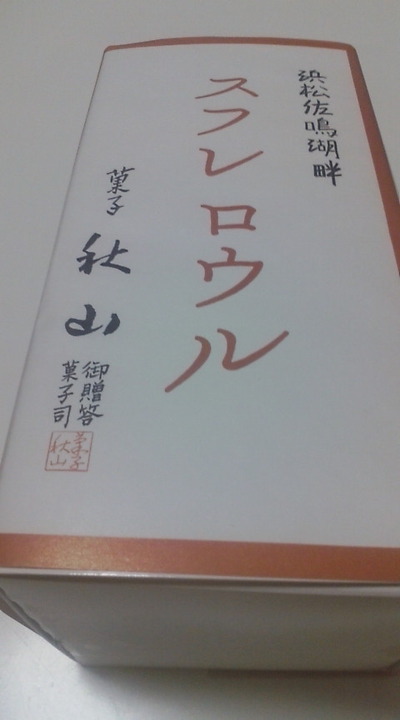 浜松佐鳴湖畔
スフレロウル
菓子 秋山
御贈答
菓子司
菓子
秋山